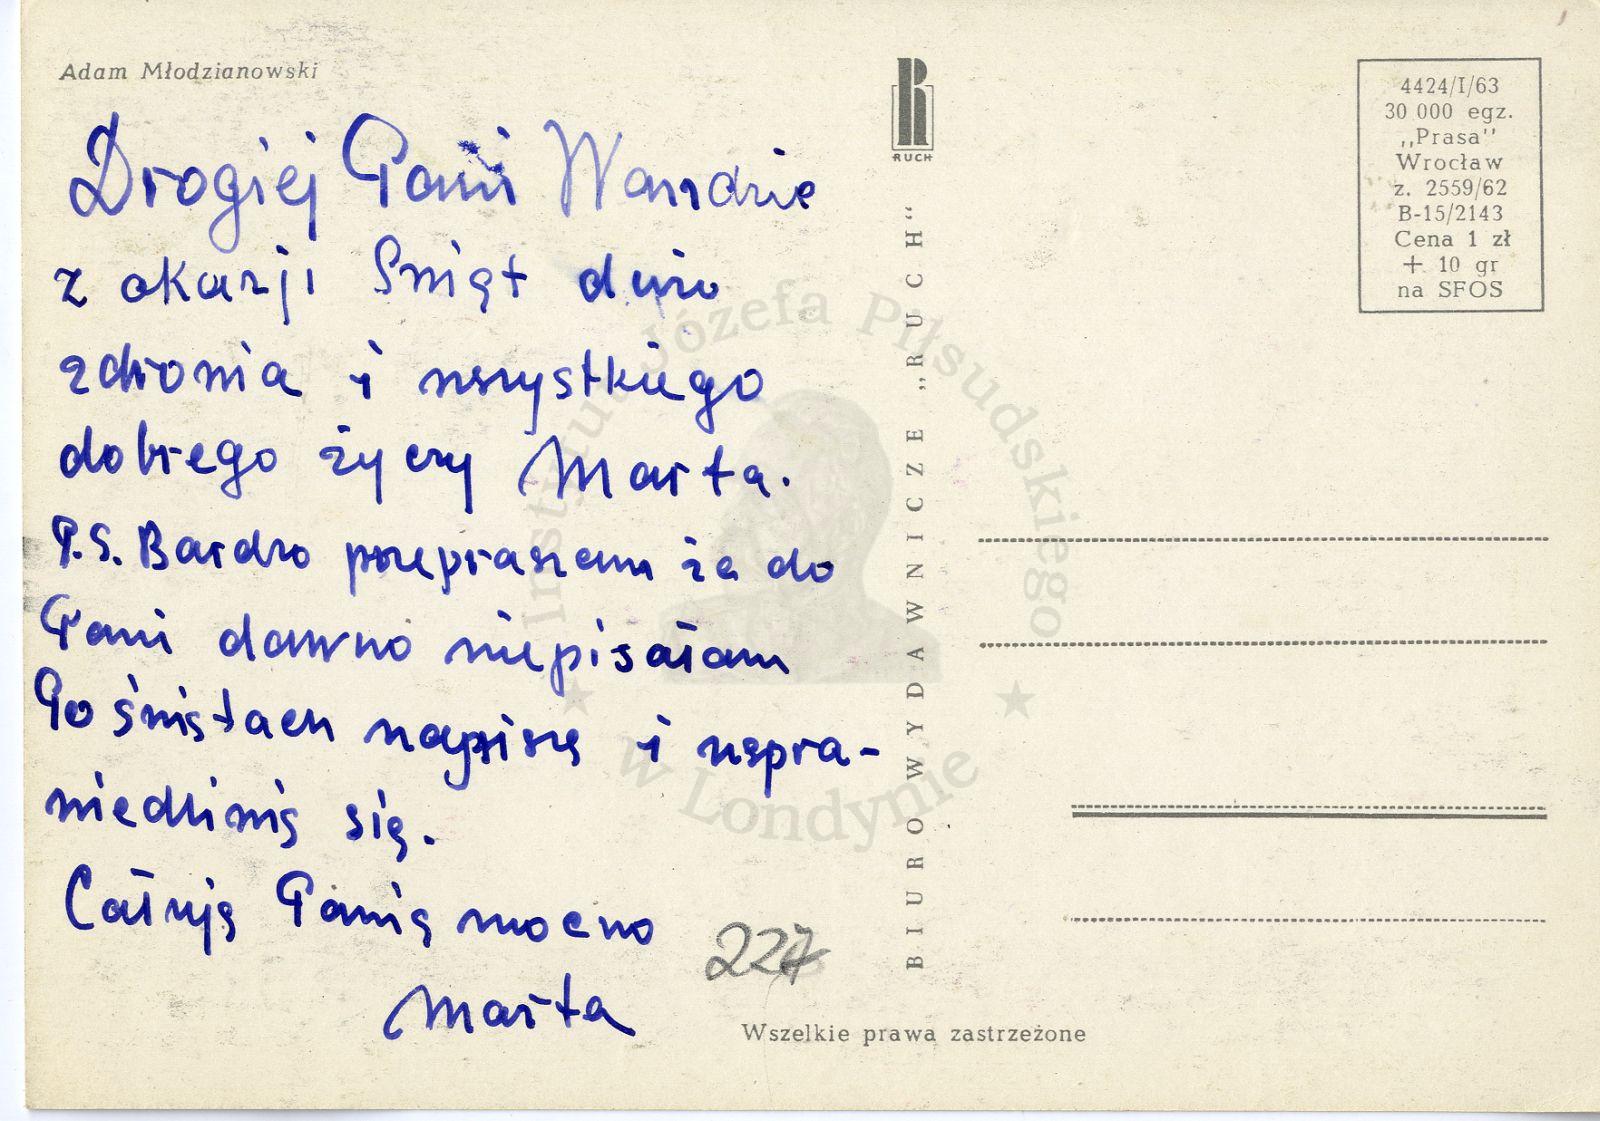 Adam Młodzianowski
Drogiej Pani Wandzie
z okazji Świąt dużo
zdrowia i wszystkiego
dobrego życzy Marta.
P.S. Bardzo przepraszam że do
Pani dawno niepisałam
Po świętach napiszę i uspra-
wiedliwię się.
Całuję Panią mocno
Marta
227
RUCH
BIURO WYDAWNICZE „RUCH"
4424/I/63
30 000 egz.
„Prasa"
Wrocław
z. 2559/62
B-15/2143
Cena 1 zł
+ 10 gr
na SFOS
Wszelkie prawa zastrzeżone
Instytut Józefa Piłsudskiego
w Londynie